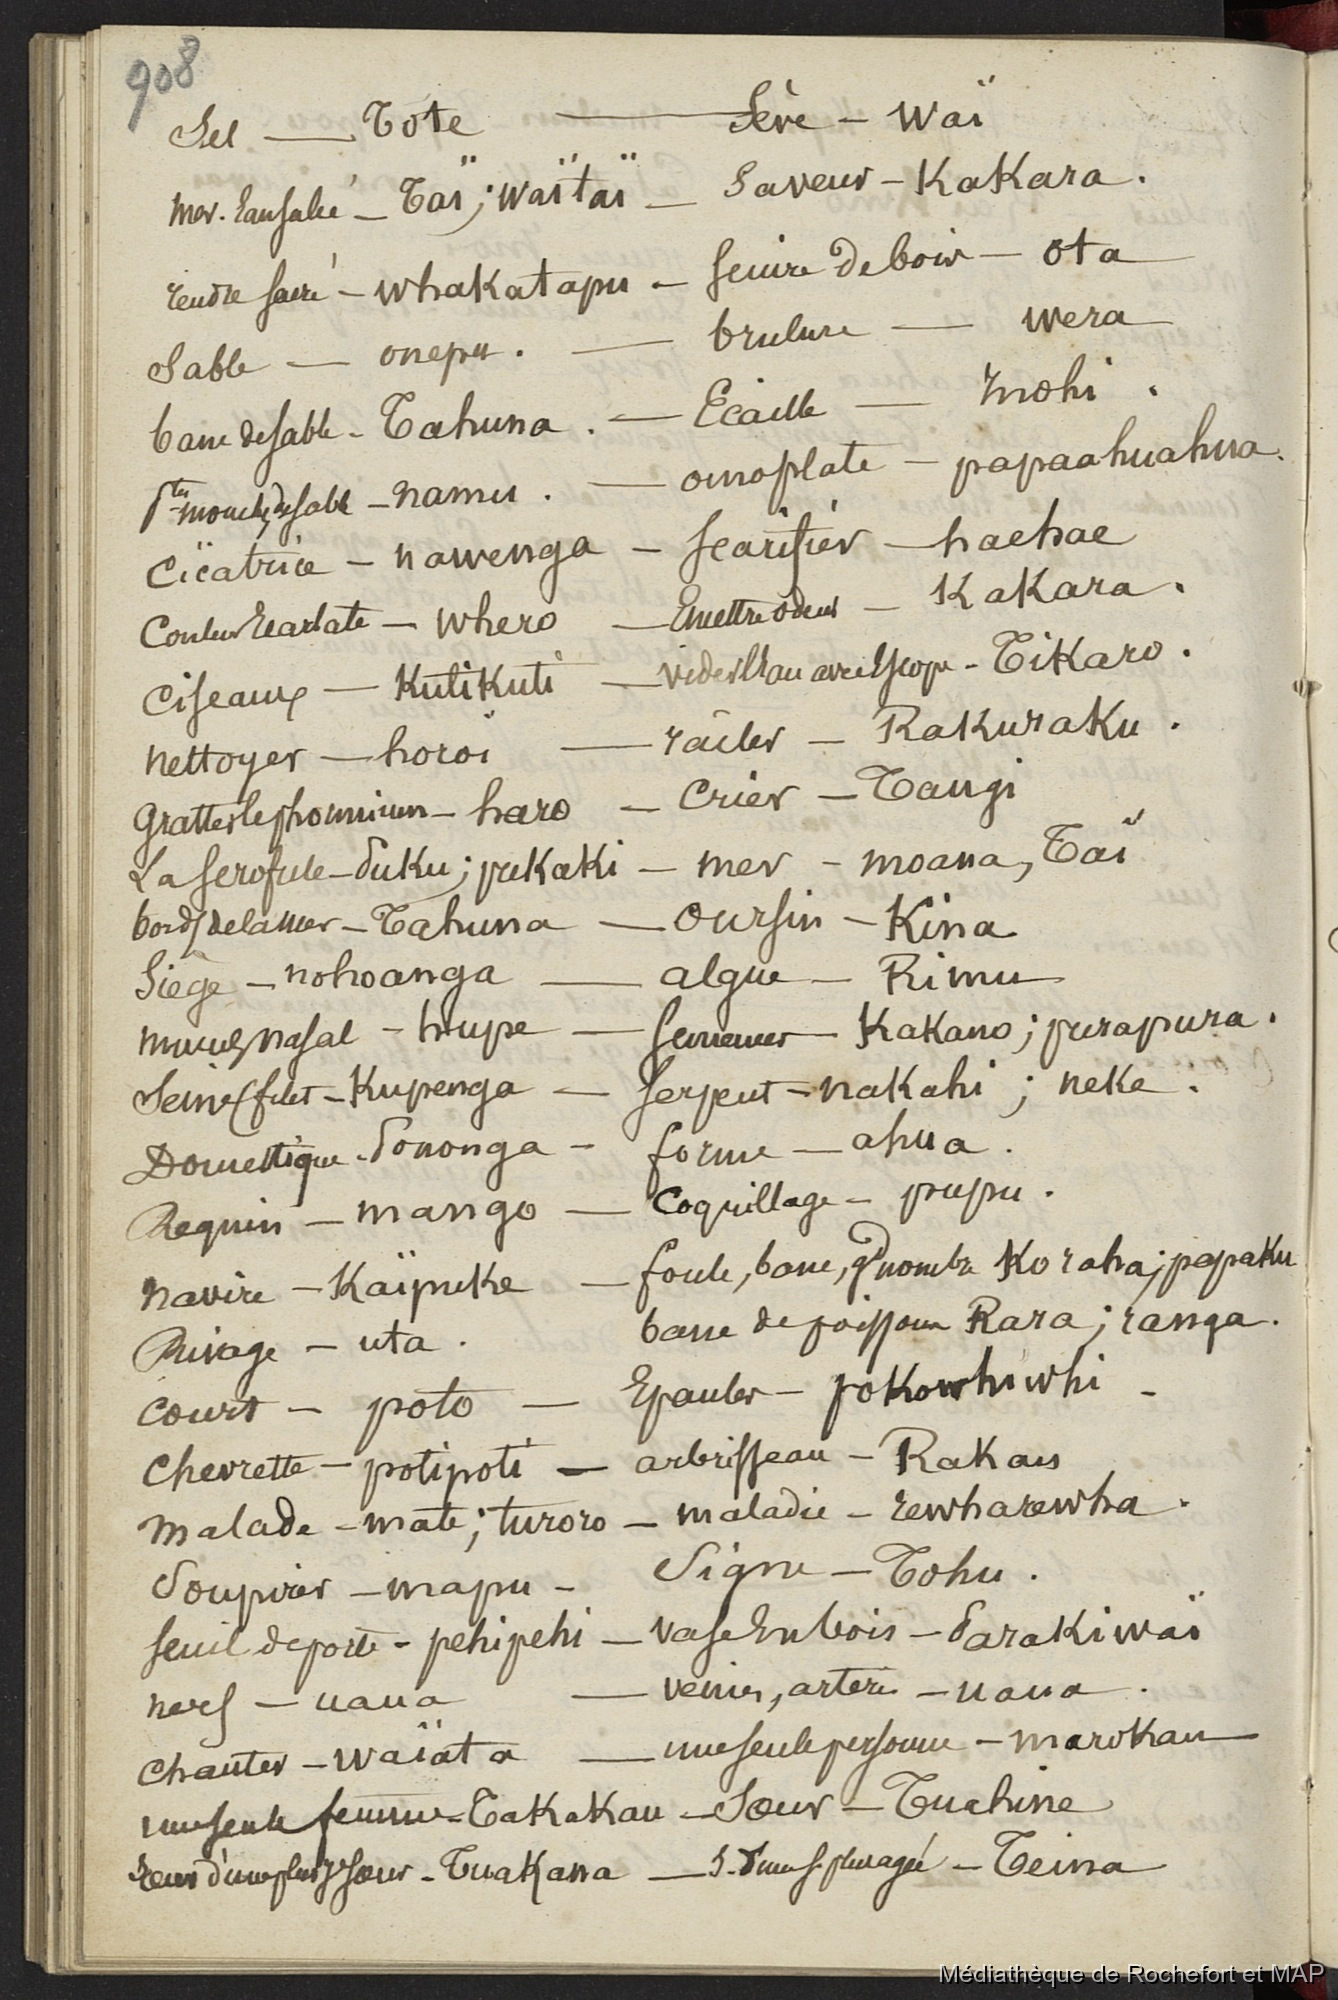 908
Sel — Tote — Sève — Waï
mer. Eau salée — Taï; Waïtaï — Saveur — Kakara.
rendre sacré — whakatapu — Sciure de bois — ota
Sable — onepu. — brulure — wera
banc de sable — Tahuna. — Ecaille — mohi.
ptes mouches de sable — namu. — omoplate — papaahuahua.
Cicatrice — nawenga — scarifier — haehae
Couleur Ecarlate — whero — Emettre odeur — Kakara.
Ciseaux — Kutikuti — vider l'Eau avec Escope — Tikaro.
nettoyer — horoï — râcler — Rakuraku.
Gratter le phormium — haro — Crier — Tangi
La scrofule — Puku; pukaki — mer — moana, Taï
bords de la mer — Tahuna — oursin — Kina
Siège — nohoanga — algue — Rimu
mucus nasal — hupe — semences — Kakano; purapura.
Seine filet — Kupenga — Serpent — nakahi; neke.
Domestique — Pononga — forme — ahua.
Requin — mango — Coquillage — pupu.
navire — Kaïpuke — foule, banc, gd nombre Koraha; papaku
Rivage — uta. banc de poissons Rara; ranga.
court — poto — Epaules — pokowhiwhi —
Chevrette — potipoti — arbrisseau — Rakau
Malade — mate; turoro — maladie — rewharewha.
Soupirer — mapu — Signe — Tohu.
seuil de porte — pehipehi — vase En bois — Parakiwaï
nerfs — uaua — veines, artère — uaua.
chanter — waïata — une seule personne — marokau
une seule femme — Takakau — Soeur — Tuahine
Soeur d'une plus je soeur — Tuakana — S. d'une s. plus agée — Teina
Médiathèque de Rochefort et MAP